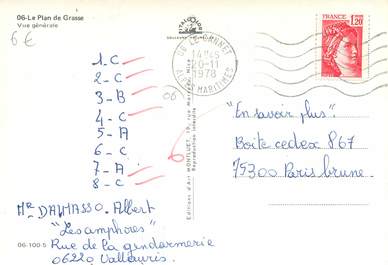 06-Le Plan de Grasse
Vue générale
6€
1-C
2-C
3-B
4-C
5-A
6-C
7-A
8-C
06
Mr DALMASSO. Albert
"Les amphores"
Rue de la gendarmerie
06220 Vallauris.
06-100 S
Editions d'Art MONTLUET
Reproduction interdite
06 LE CANNET
14H45
20-11
1978
ALPES MARITIMES
1,20
"En savoir plus".
Boite cedex 867
75300 Paris brune.